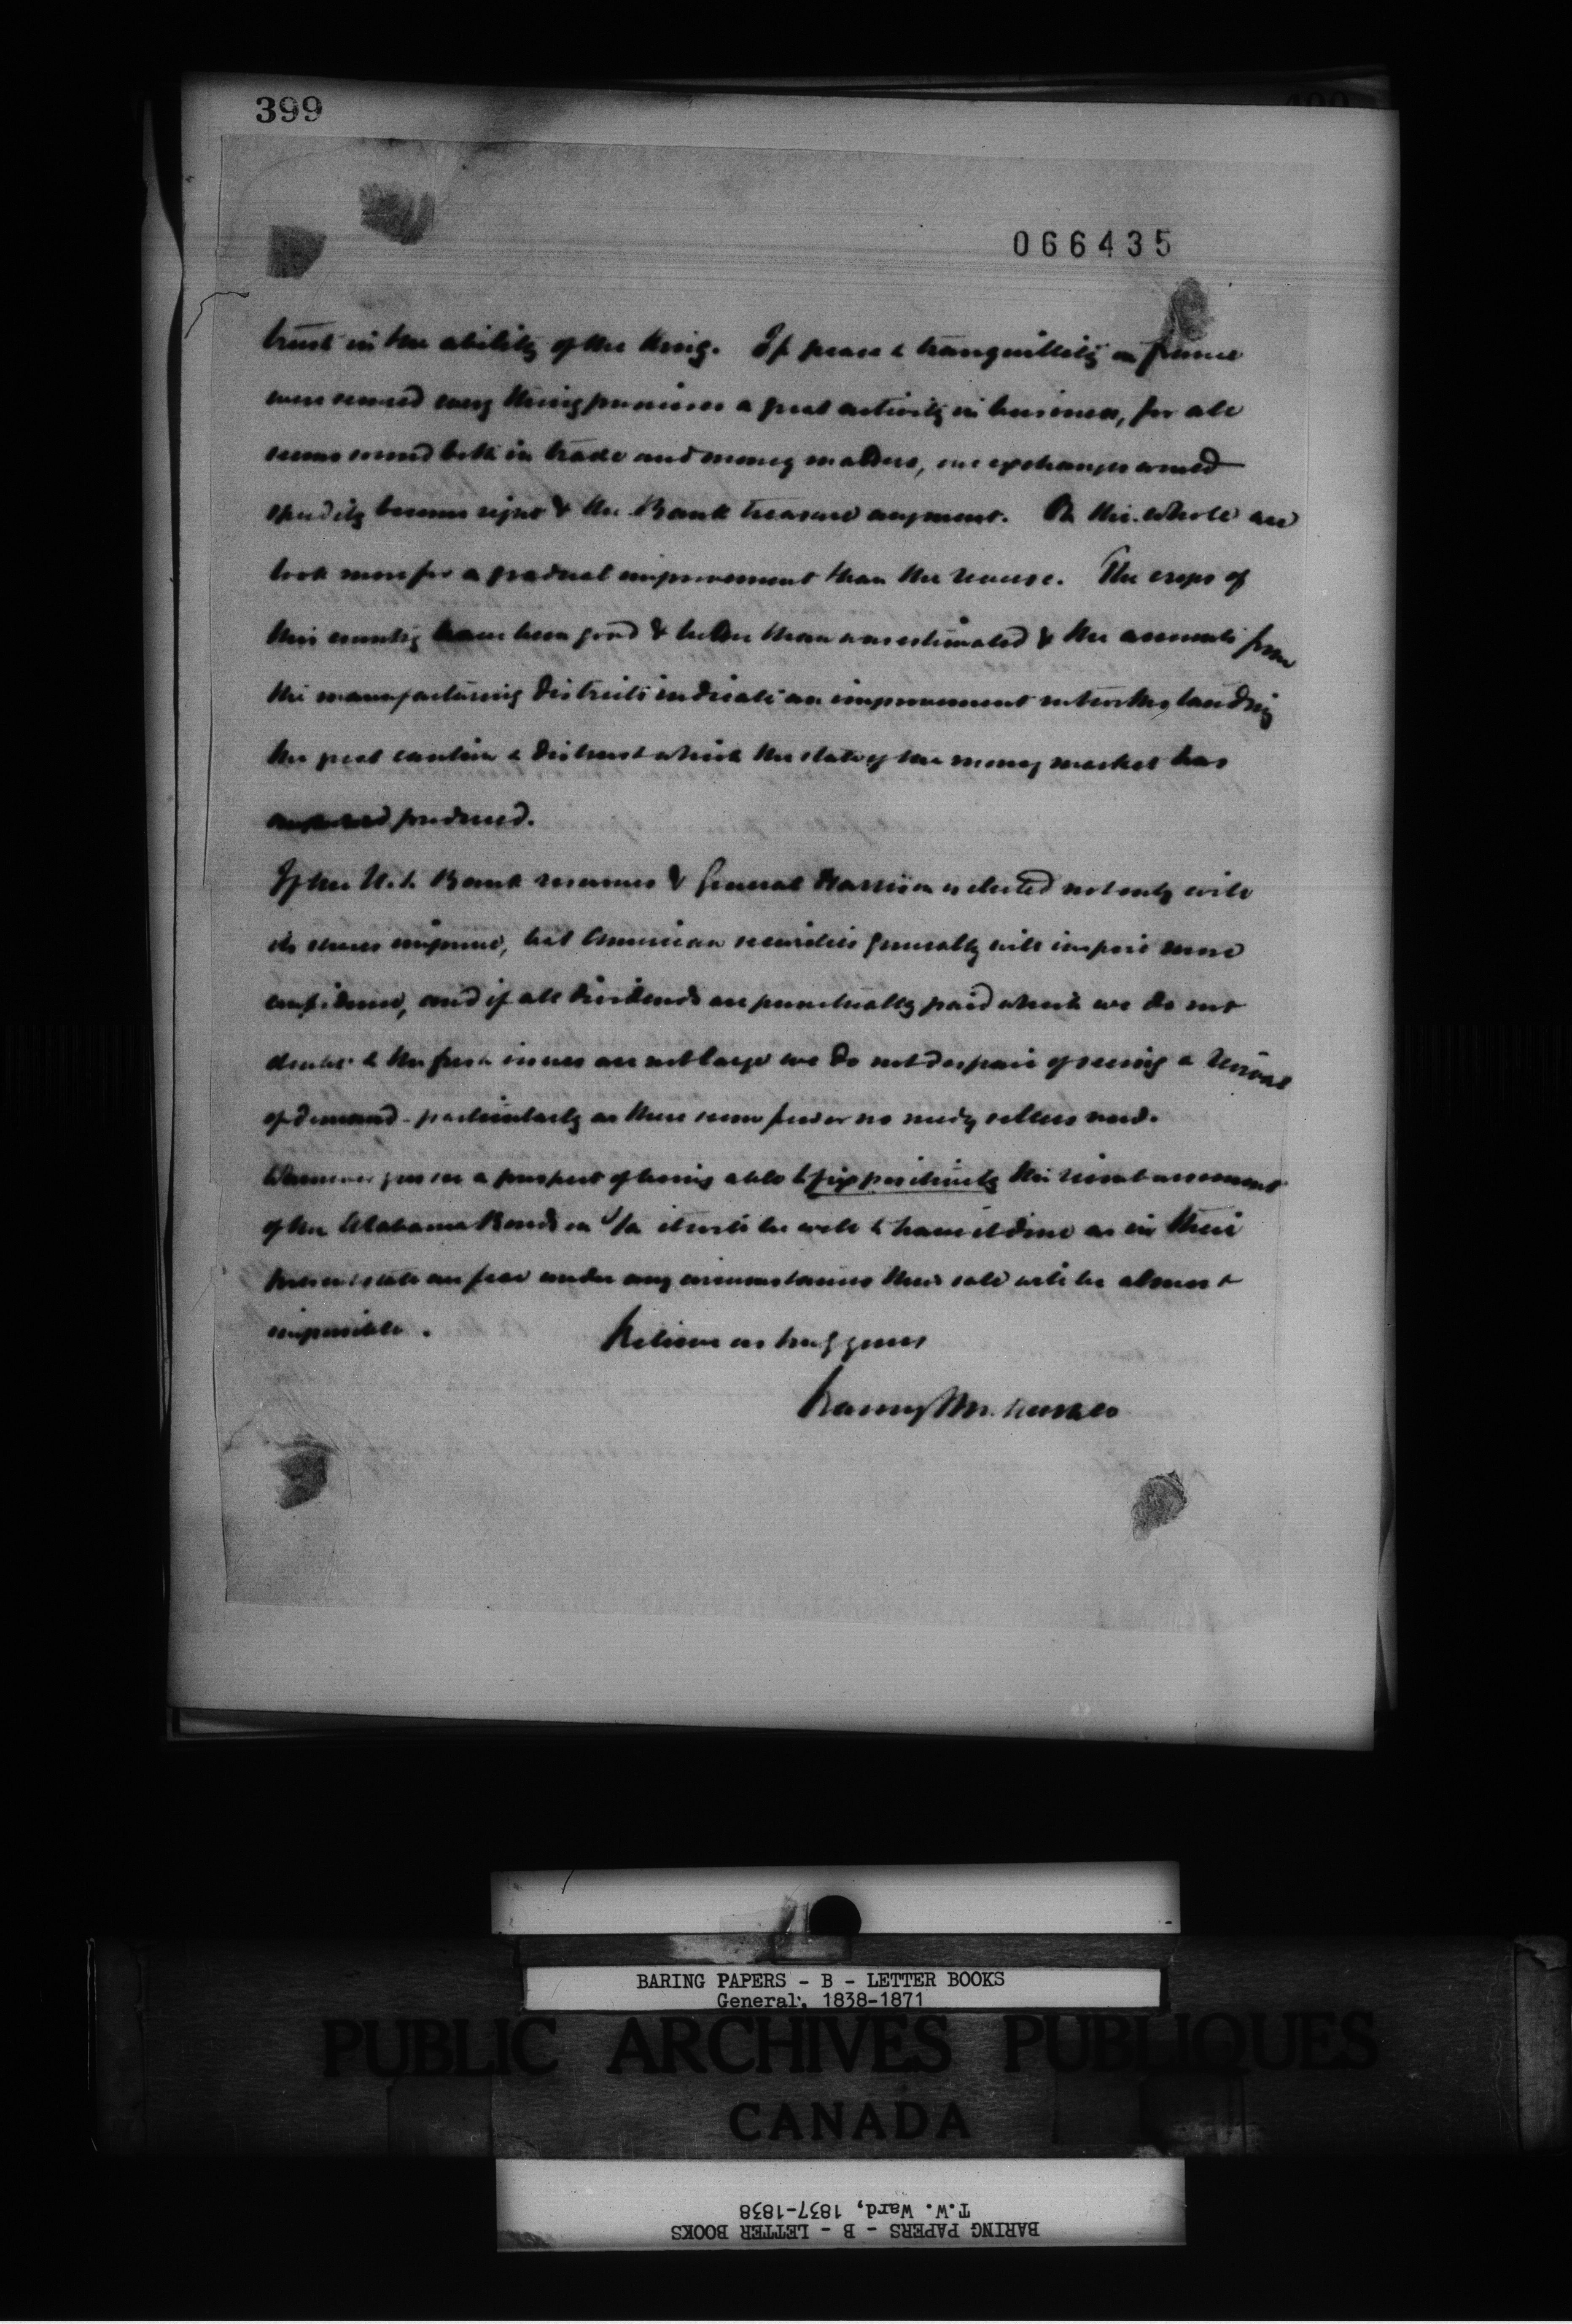 399
066435
trust in the ability of the King. If peace & tranquillity in France
were secured every thing promises a great activity in business, for all
seems sound both in trade and money matters, our exchanges would
speedily become right & the Bank treasure augment. On the whole we
look more for a gradual improvement than the reverse. The crops of
this country have been good & better than was estimated & the accounts from
the manufacturing districts indicate an improvement notwithstanding
the great caution & distrust which the state of the money market has
produced.
If the U.S. Bank resumes & General Harrison is elected not only will
its shares improve, but American securities generally will inspire more
confidence, and if all dividends are punctually paid which we do not
doubt & the fresh issues are not large we do not despair of seeing a revival
of demand - particularly as there seem few or no needy sellers
Whenever you see a prospect of being able to fix positively the reimbursement
of the Alabama Bonds in it will be well to have it done as in their
present state we fear under any circumstances their sale will be almost
impossible.
Believe us truly yours
Baring
BARING PAPERS - B - LETTER BOOKS
General, 1838-1871
PUBLIC ARCHIVES PUBLIQUES
CANADA
T.W. Ward, 1837-1838
BARING PAPERS - B - LETTER BOOKS